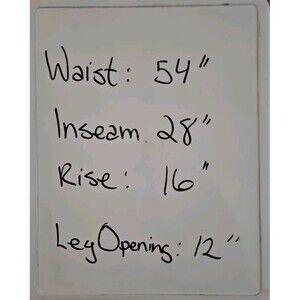 Waist: 54"
Inseam 28"
Rise: 16"
Leg Opening: 12"